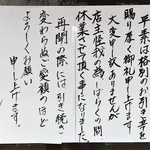 平素は格別のお引立を
賜り厚く御礼申し上げます。
大変申し訳ありませんが
店主怪我の為しばらくの間
休業させて頂く事になりました。
再開の際には引き続き
変わらぬご愛顧のほど
よろしくお願い
申し上げます。